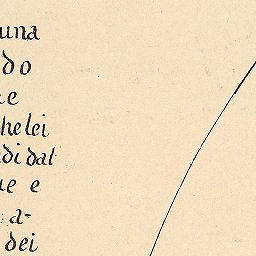 una
do
e
he lei
di dal
ue e
a-
dei